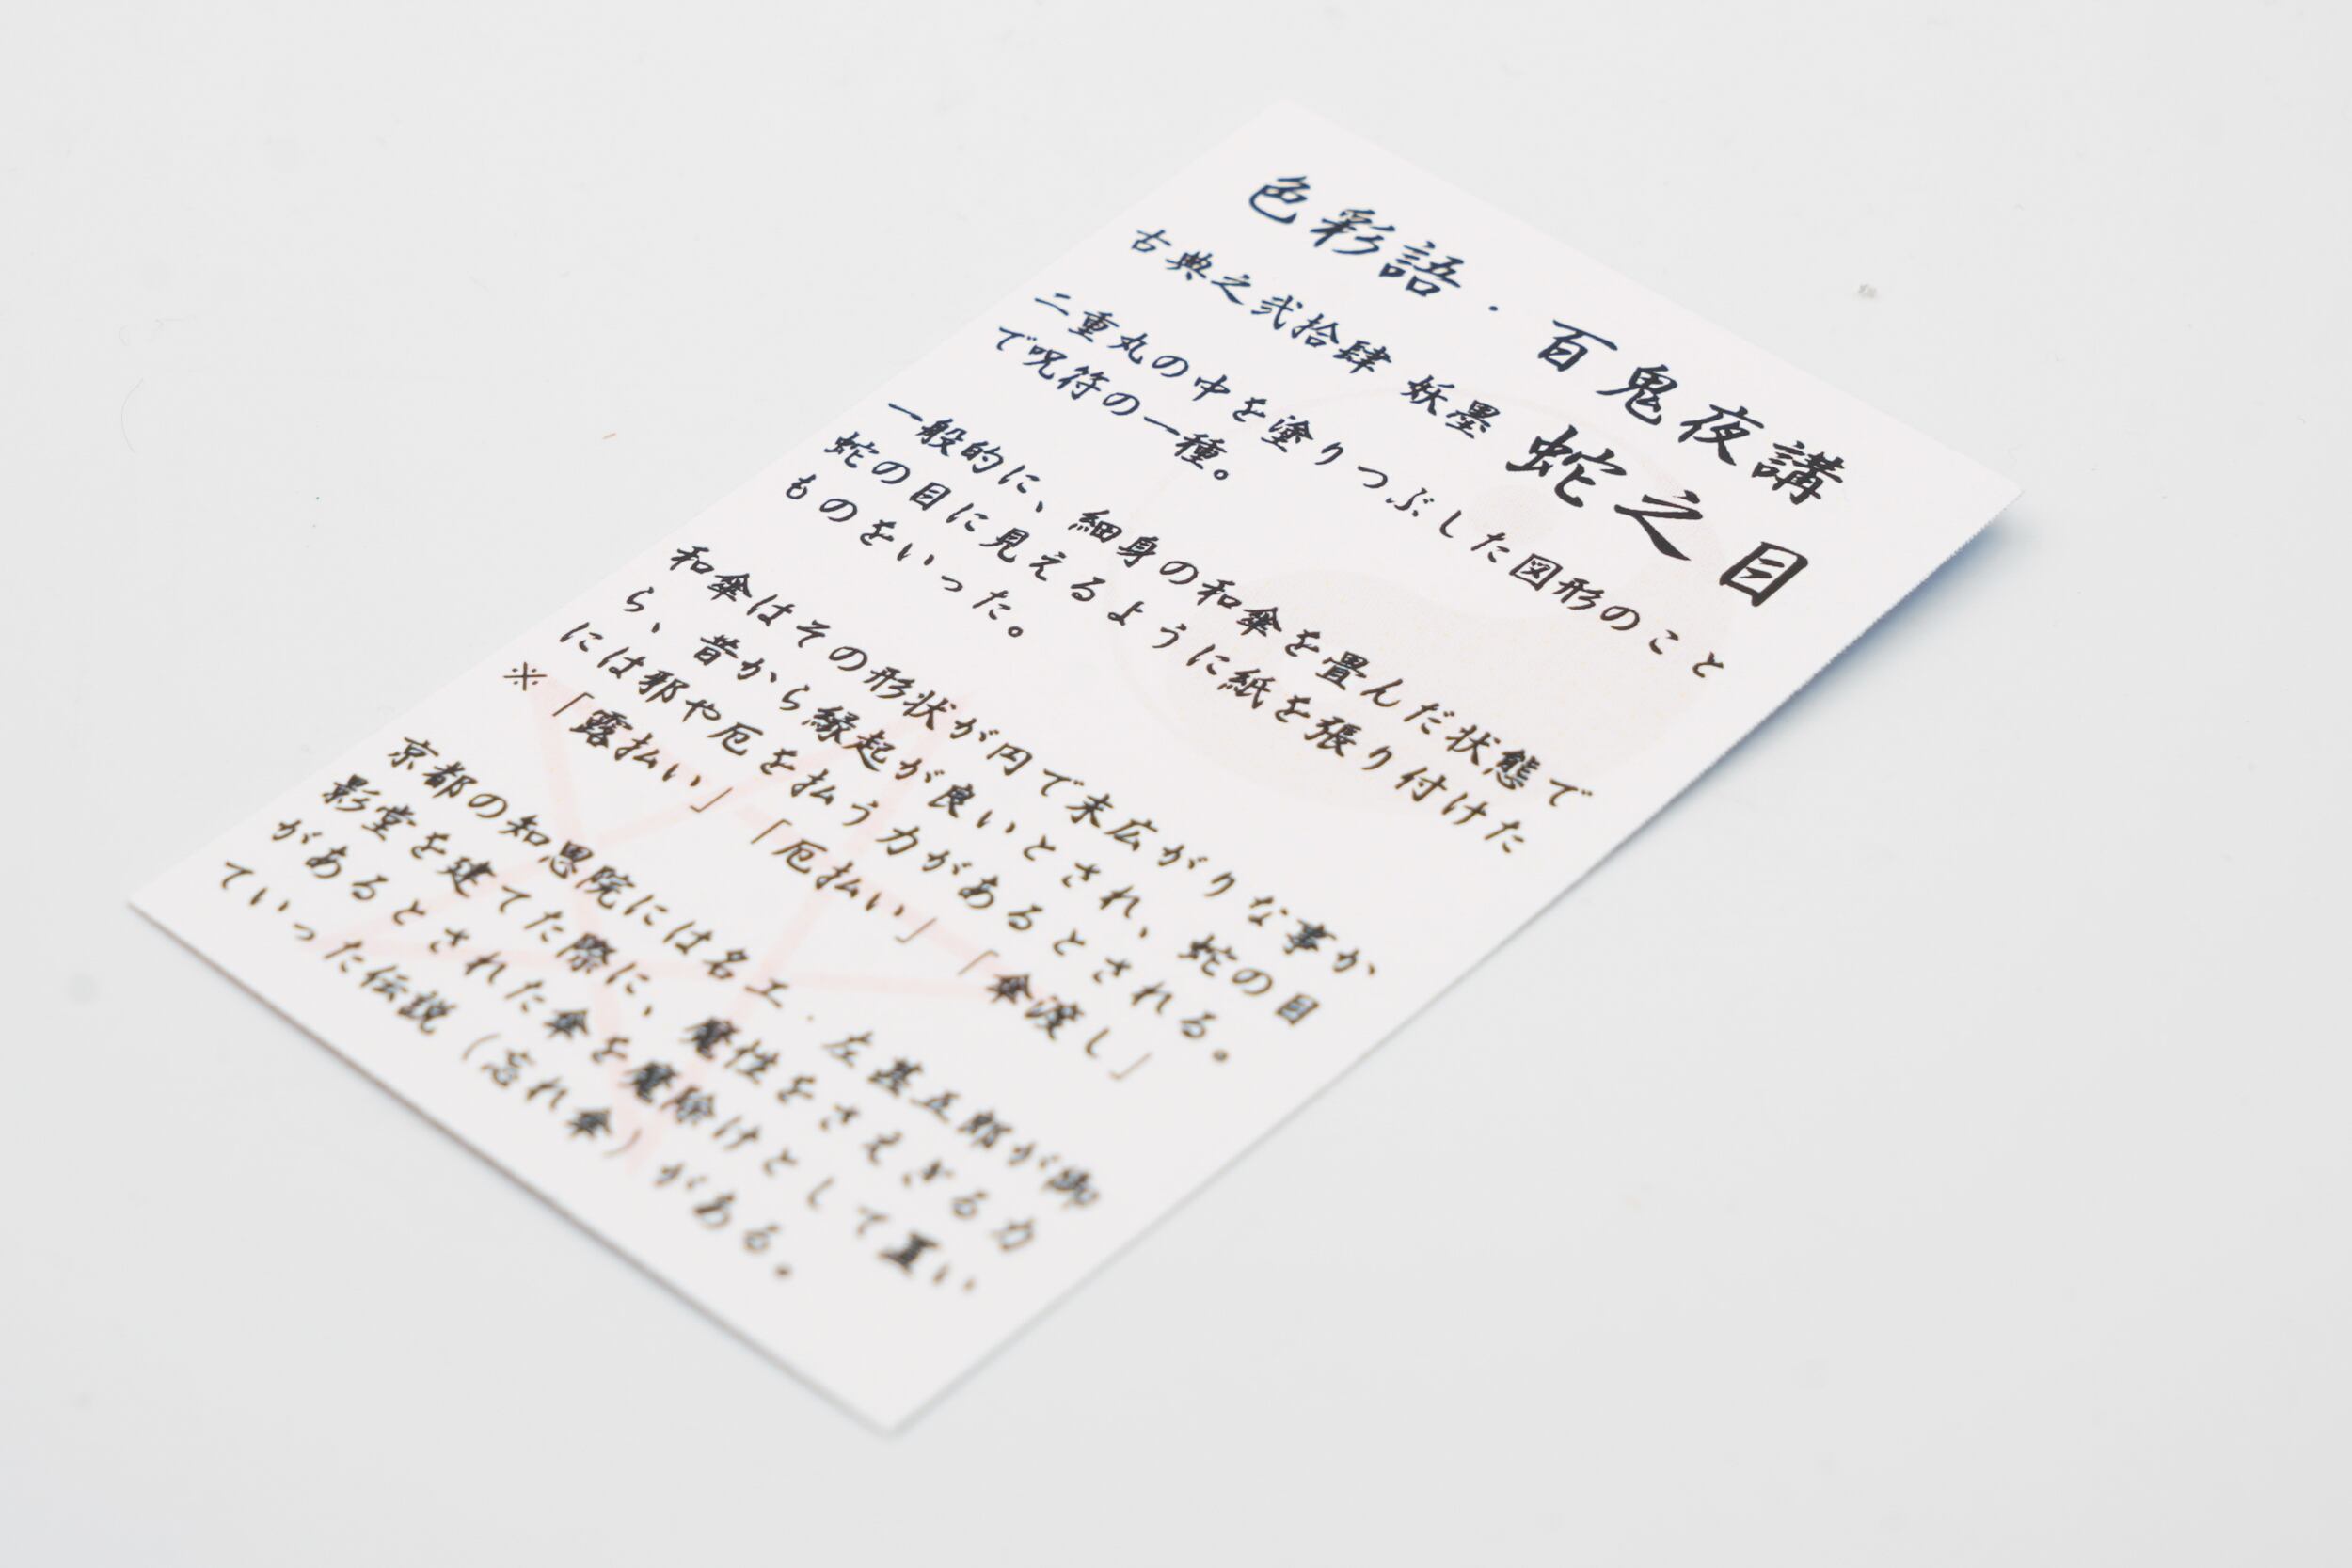 色彩語・百鬼夜講
古典之弐拾肆 妖墨 蛇之目
二重丸の中を塗りつぶした図形のこと
で呪符の一種。
一般的に、細身の和傘を畳んだ状態で
蛇の目に見えるように紙を張り付けた
ものをいった。
和傘はその形状が円で末広がりな事か
ら、昔から縁起が良いとされ、蛇の目
には邪や厄を払う力があるとされる。
※「露払い」「厄払い」「傘渡し」
京都の知恩院には名工・左甚五郎が御
影堂を建てた際に、魔性をさえぎる力
があるとされた傘を魔除けとして置い
ていった伝説（忘れ傘）がある。